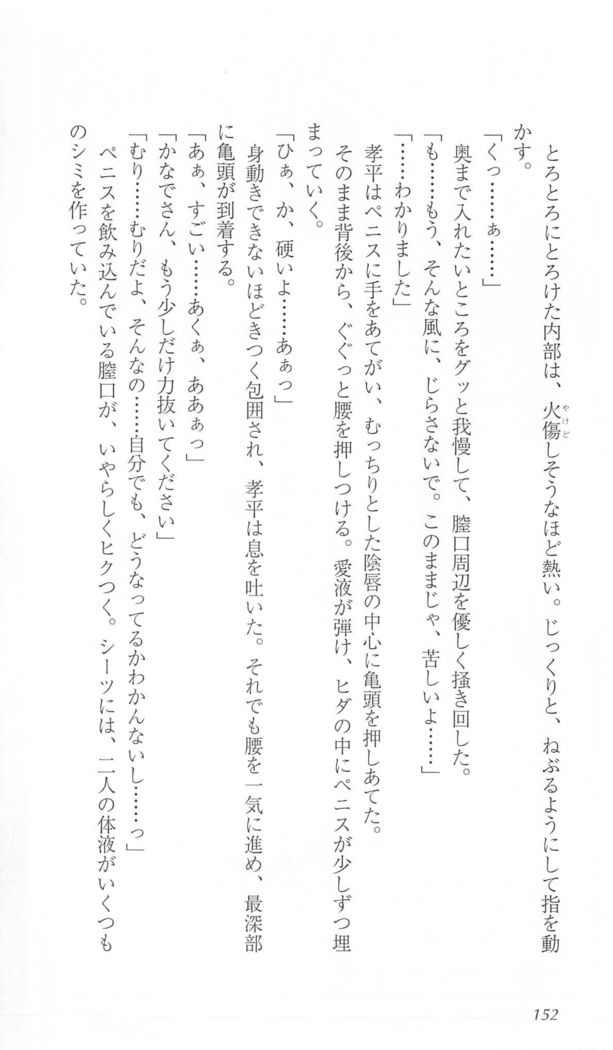 とろとろにとろけた内部は、火傷しそうなほど熱い。じっくりと、ねぶるようにして指を動
やけど
かす。
「くっ……ぁ……」
奥まで入れたいところをグッと我慢して、膣口周辺を優しく掻き回した。
「も……もう、そんな風に、じらさないで。このままじゃ、苦しいよ……」
「……わかりました」
孝平はペニスに手をあてがい、むっちりとした陰唇の中心に亀頭を押しあてた。
そのまま背後から、ぐぐっと腰を押しつける。愛液が弾け、ヒダの中にペニスが少しずつ埋
まっていく。
「ひぁ、か、硬いよ……あぁっ」
身動きできないほどきつく包囲され、孝平は息を吐いた。それでも腰を一気に進め、最深部
に亀頭が到着する。
「あぁ、すごい……あくぁ、ああぁっ」
「かなでさん、もう少しだけ力抜いてください」
「むり……むりだよ、そんなの……自分でも、どうなってるかわかんないし……っ」
ペニスを飲み込んでいる膣口が、いやらしくヒクつく。シーツには、二人の体液がいくつも
のシミを作っていた。
152